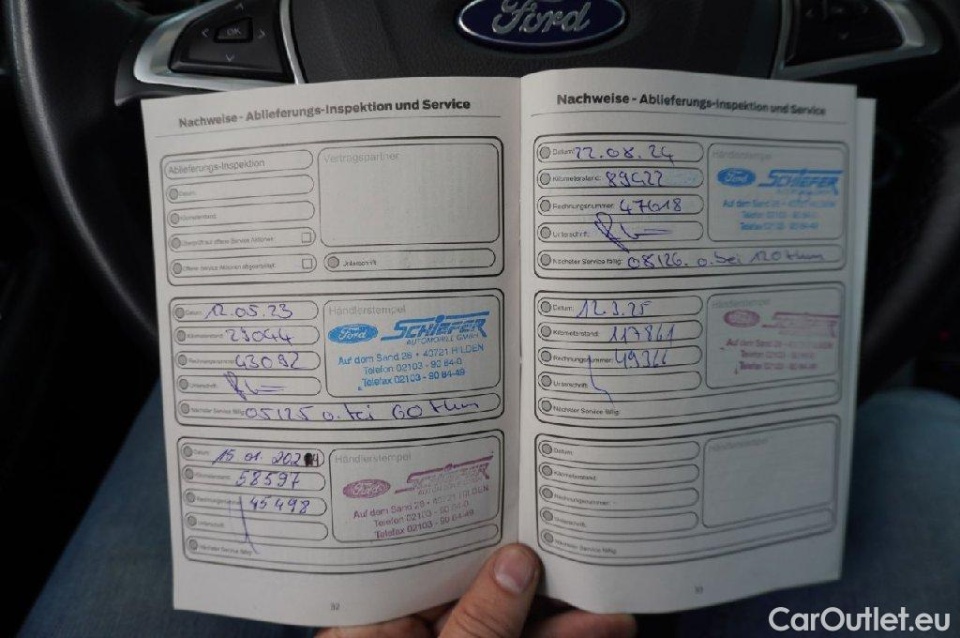 OK
Ford
Nachweise - Ablieferungs-Inspektion und Service
Ablieferungs-Inspektion
Vertragspartner
Datum:
Kilometerstand:
Überprüft auf offene Service Aktionen
Offene Service Aktionen abgearbeitet
Unterschrift:
Datum: 12.05.23
Kilometerstand: 29044
Rechnungsnummer: 43092
Unterschrift:
Nächster Service fällig: 05/25 o. bei 60 tkm
Händlerstempel
Ford SCHIEFER
AUTOMOBILE GMBH
Auf dem Sand 28 • 40721 HILDEN
Telefon 02103 - 90 84-0
Telefax 02103 - 90 84-49
Datum: 15.01.2024
Kilometerstand: 58597
Rechnungsnummer: 45498
Unterschrift:
Nächster Service fällig:
Händlerstempel
Ford SCHIEFER
Auf dem Sand 28 - 40721 HILDEN
Telefon 02103 - 90 84-0
Telefax 02103 - 90 84-49
32
Nachweise - Ablieferungs-Inspektion und Service
Datum: 22.08.24
Kilometerstand: 89422
Rechnungsnummer: 47618
Unterschrift:
Nächster Service fällig: 08/26. o. bei 120 tkm
Händlerstempel
Ford SCHIEFER
Auf dem Sand 28 • 40721 HILDEN
Telefon 02103 - 90 84-0
Telefax 02103 - 90 84-49
Datum: 12.3.25
Kilometerstand: 117861
Rechnungsnummer: 49366
Unterschrift:
Nächster Service fällig:
Händlerstempel
Ford SCHIEFER
Datum:
Kilometerstand:
Rechnungsnummer:
Unterschrift:
Nächster Service fällig:
Händlerstempel
CarOutlet.eu